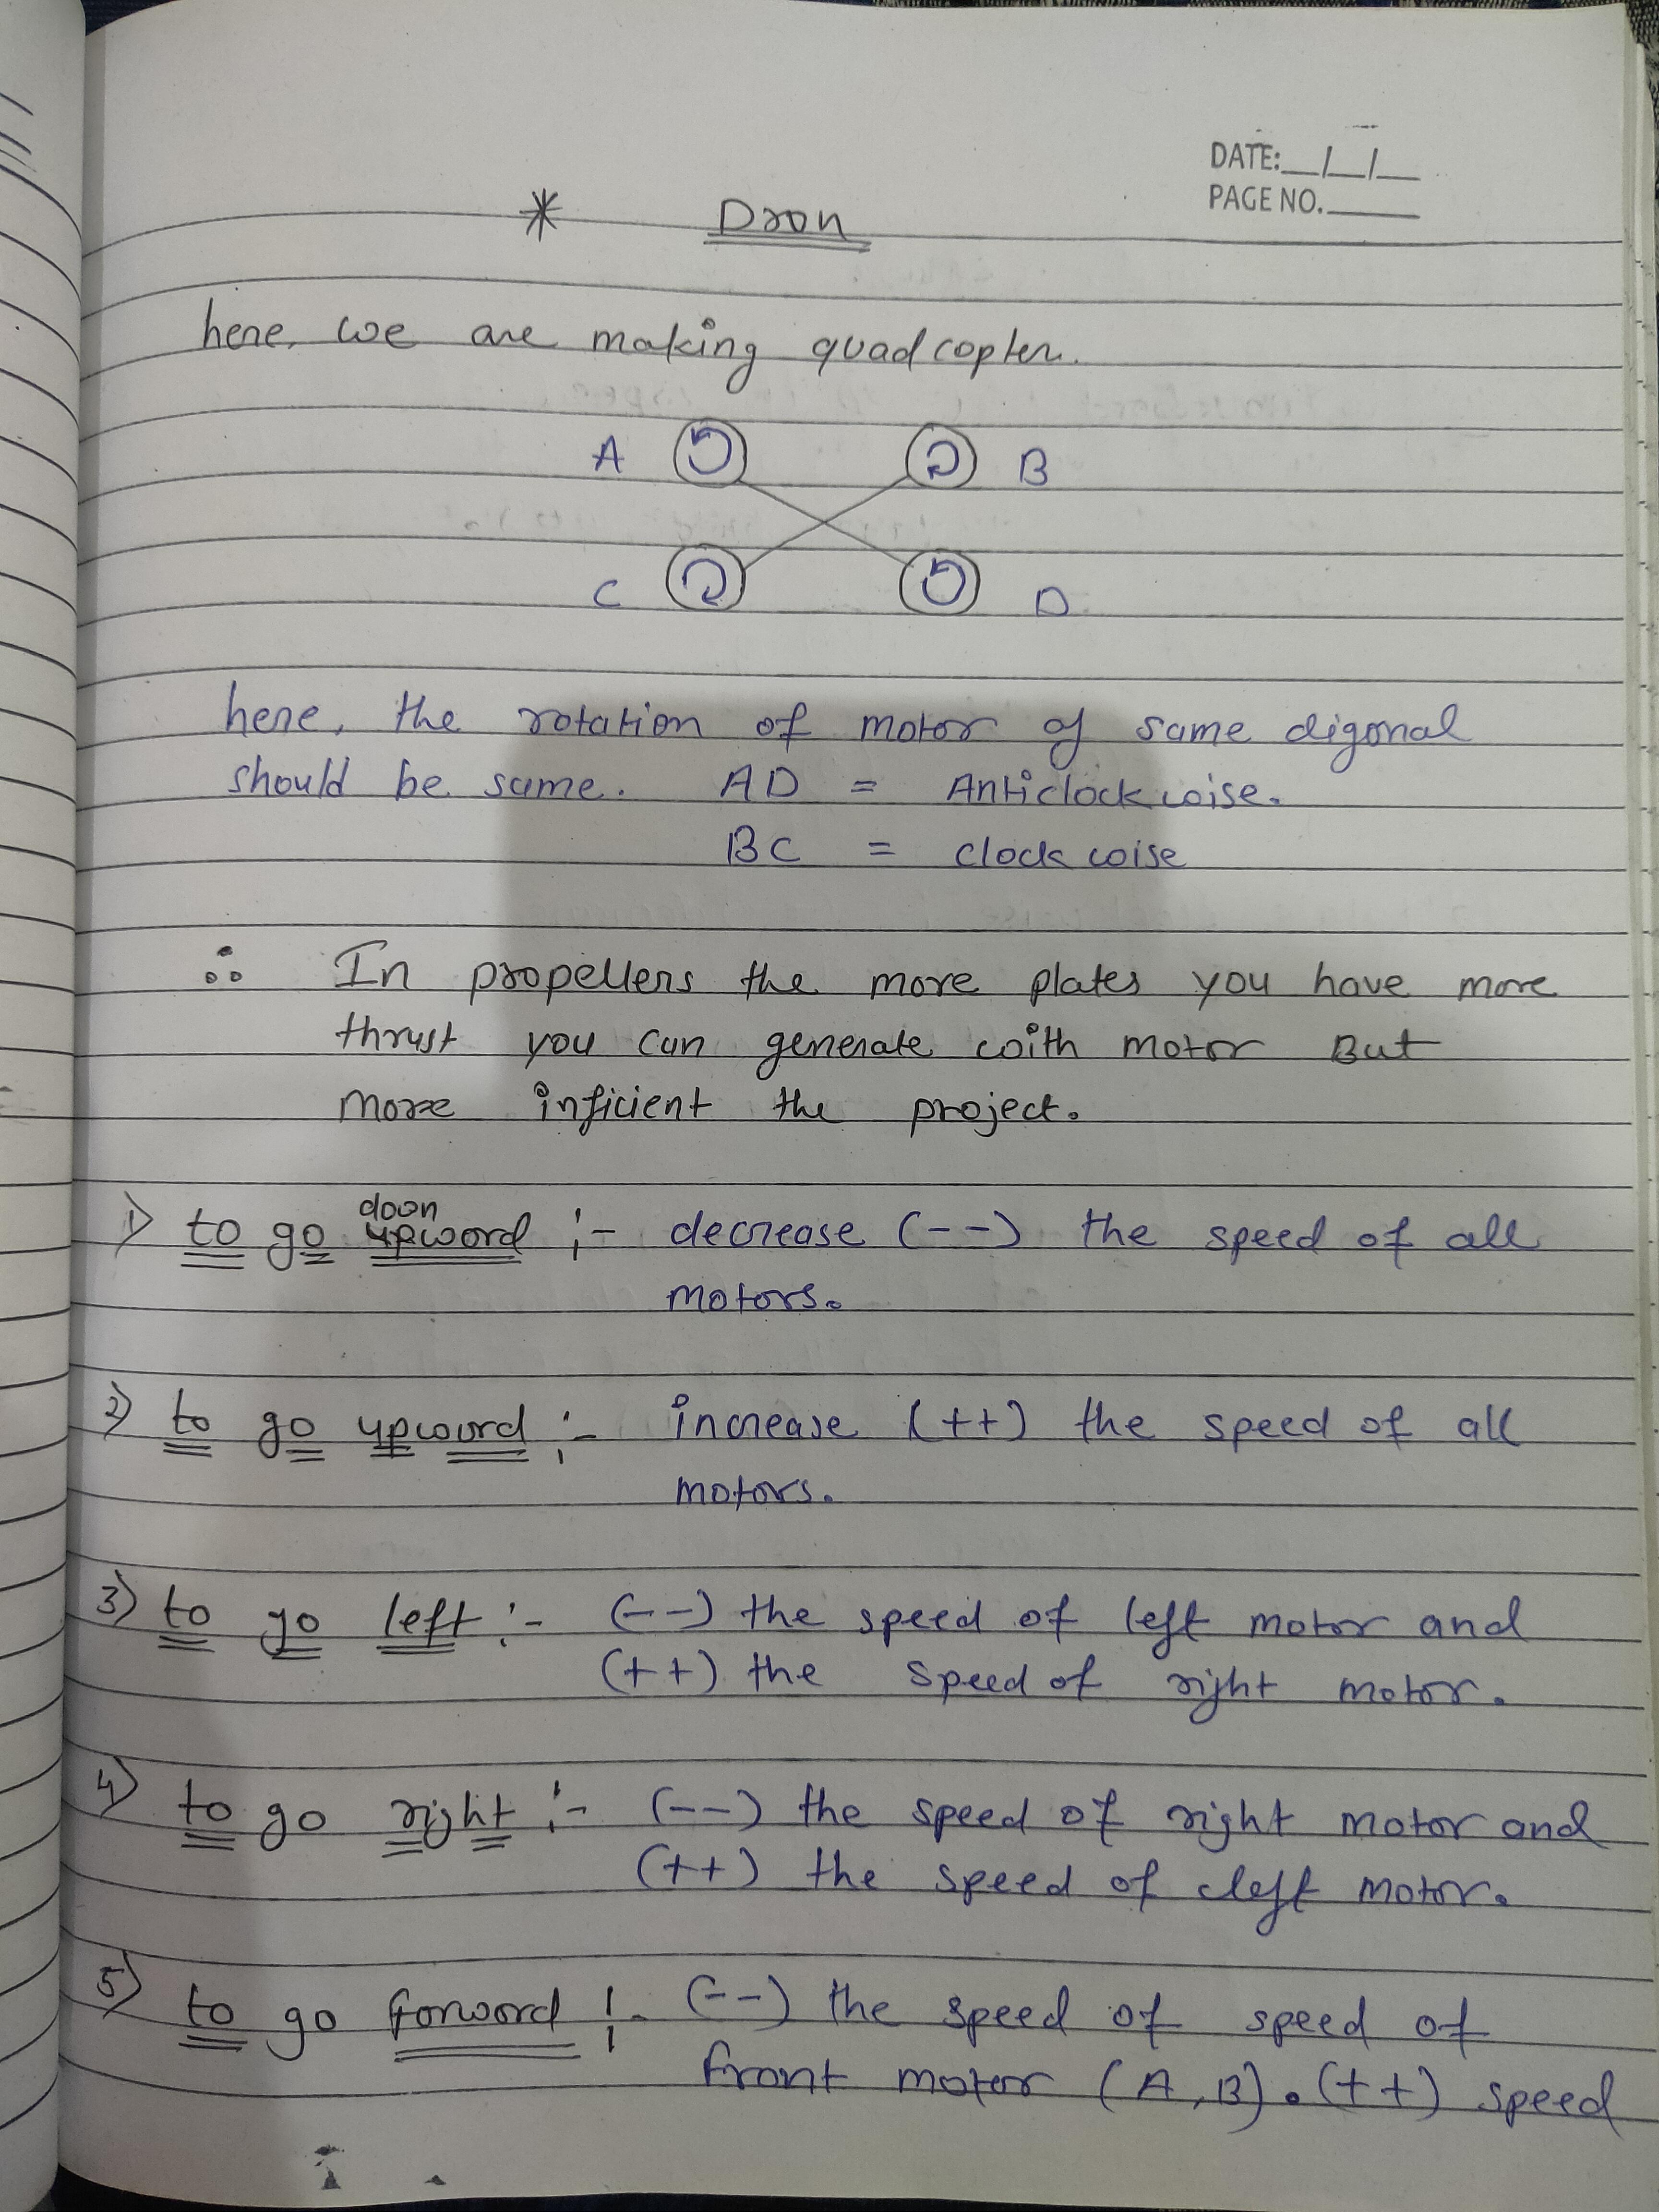 DATE:__/__/__
PAGE NO.______
* Dron
here, we are making quadcopter.
A B
C D
here, the rotation of motor of same digonal
should be same. AD = Anticlockwise.
BC = clockwise
∴ In propellers the more plates you have more
thrust you can generate with motor But
more inficient the project.
doon
1) to go upword :- decrease (--) the speed of all
motors.
2) to go upword :- increase (++) the speed of all
motors.
3) to go left :- (--) the speed of left motor and
(++) the speed of right motor.
4) to go right :- (--) the speed of right motor and
(++) the speed of left motor.
5) to go forword :- (--) the speed of speed of
front motor (A,B). (++) speed